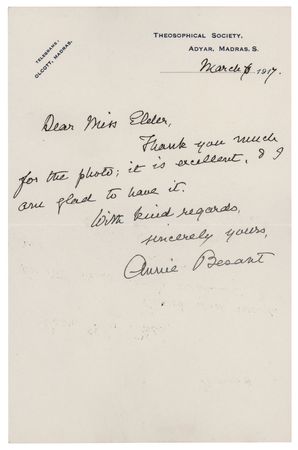 THEOSOPHICAL SOCIETY,
ADYAR, MADRAS, S.
TELEGRAMS:
OLCOTT, MADRAS.
March 6 1917.
Dear Miss Elder,
Thank you much
for the photo; it is excellent, & I
am glad to have it.
With kind regards,
sincerely yours,
Annie Besant